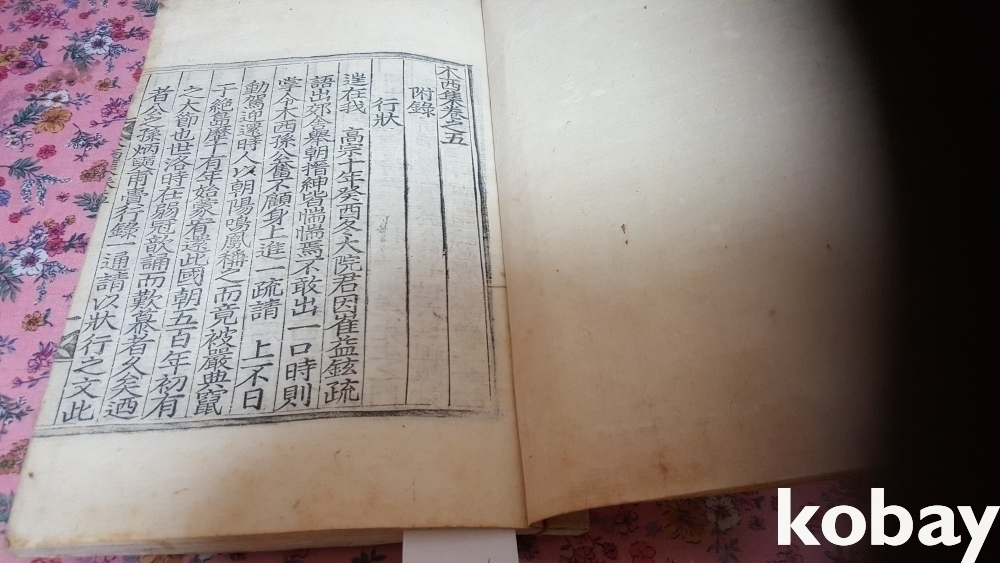 木西集卷之五
附錄
行狀
逞在我 高宗十年癸酉冬大院君因崔益鉉疏
語出郊公襮朝搢紳皆惴惴焉不敢出一口時則
掌令木西孫公奮不顧身上進一疏請 上不日
動駕迎還時人以朝陽鳴鳳稱之而竟被嚴典竄
于絶島歷十有年始蒙宥還此國朝五百年初有
之大節也世洛時在弱冠歆誦而歎慕者久矣迺
者公之孫炳奭甫賫行錄一通請以狀行之文此
kobay